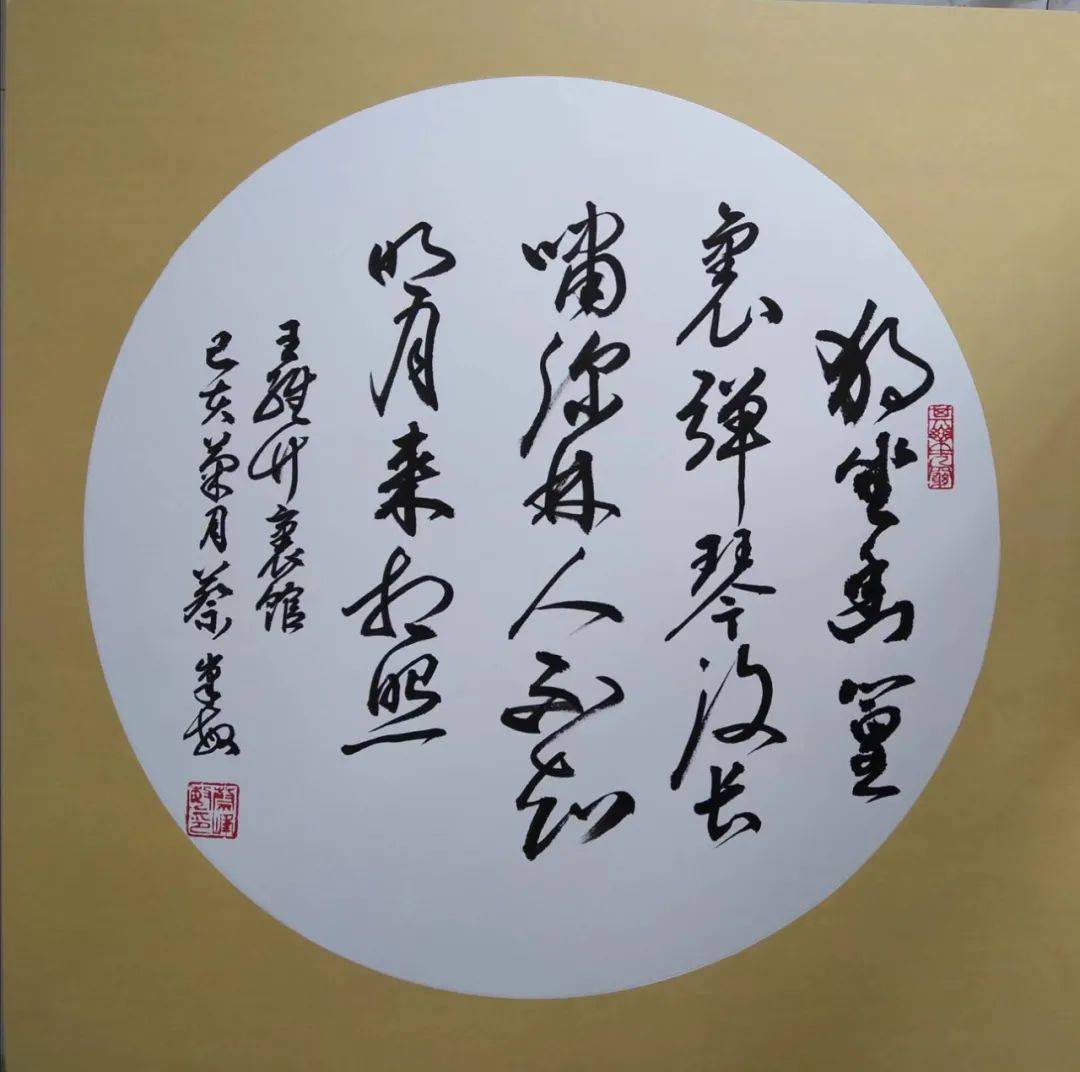 独坐幽篁
裏弹琴復长
啸深林人不知
明月来相照
王维竹裏馆
己亥菊月蔡峯敏